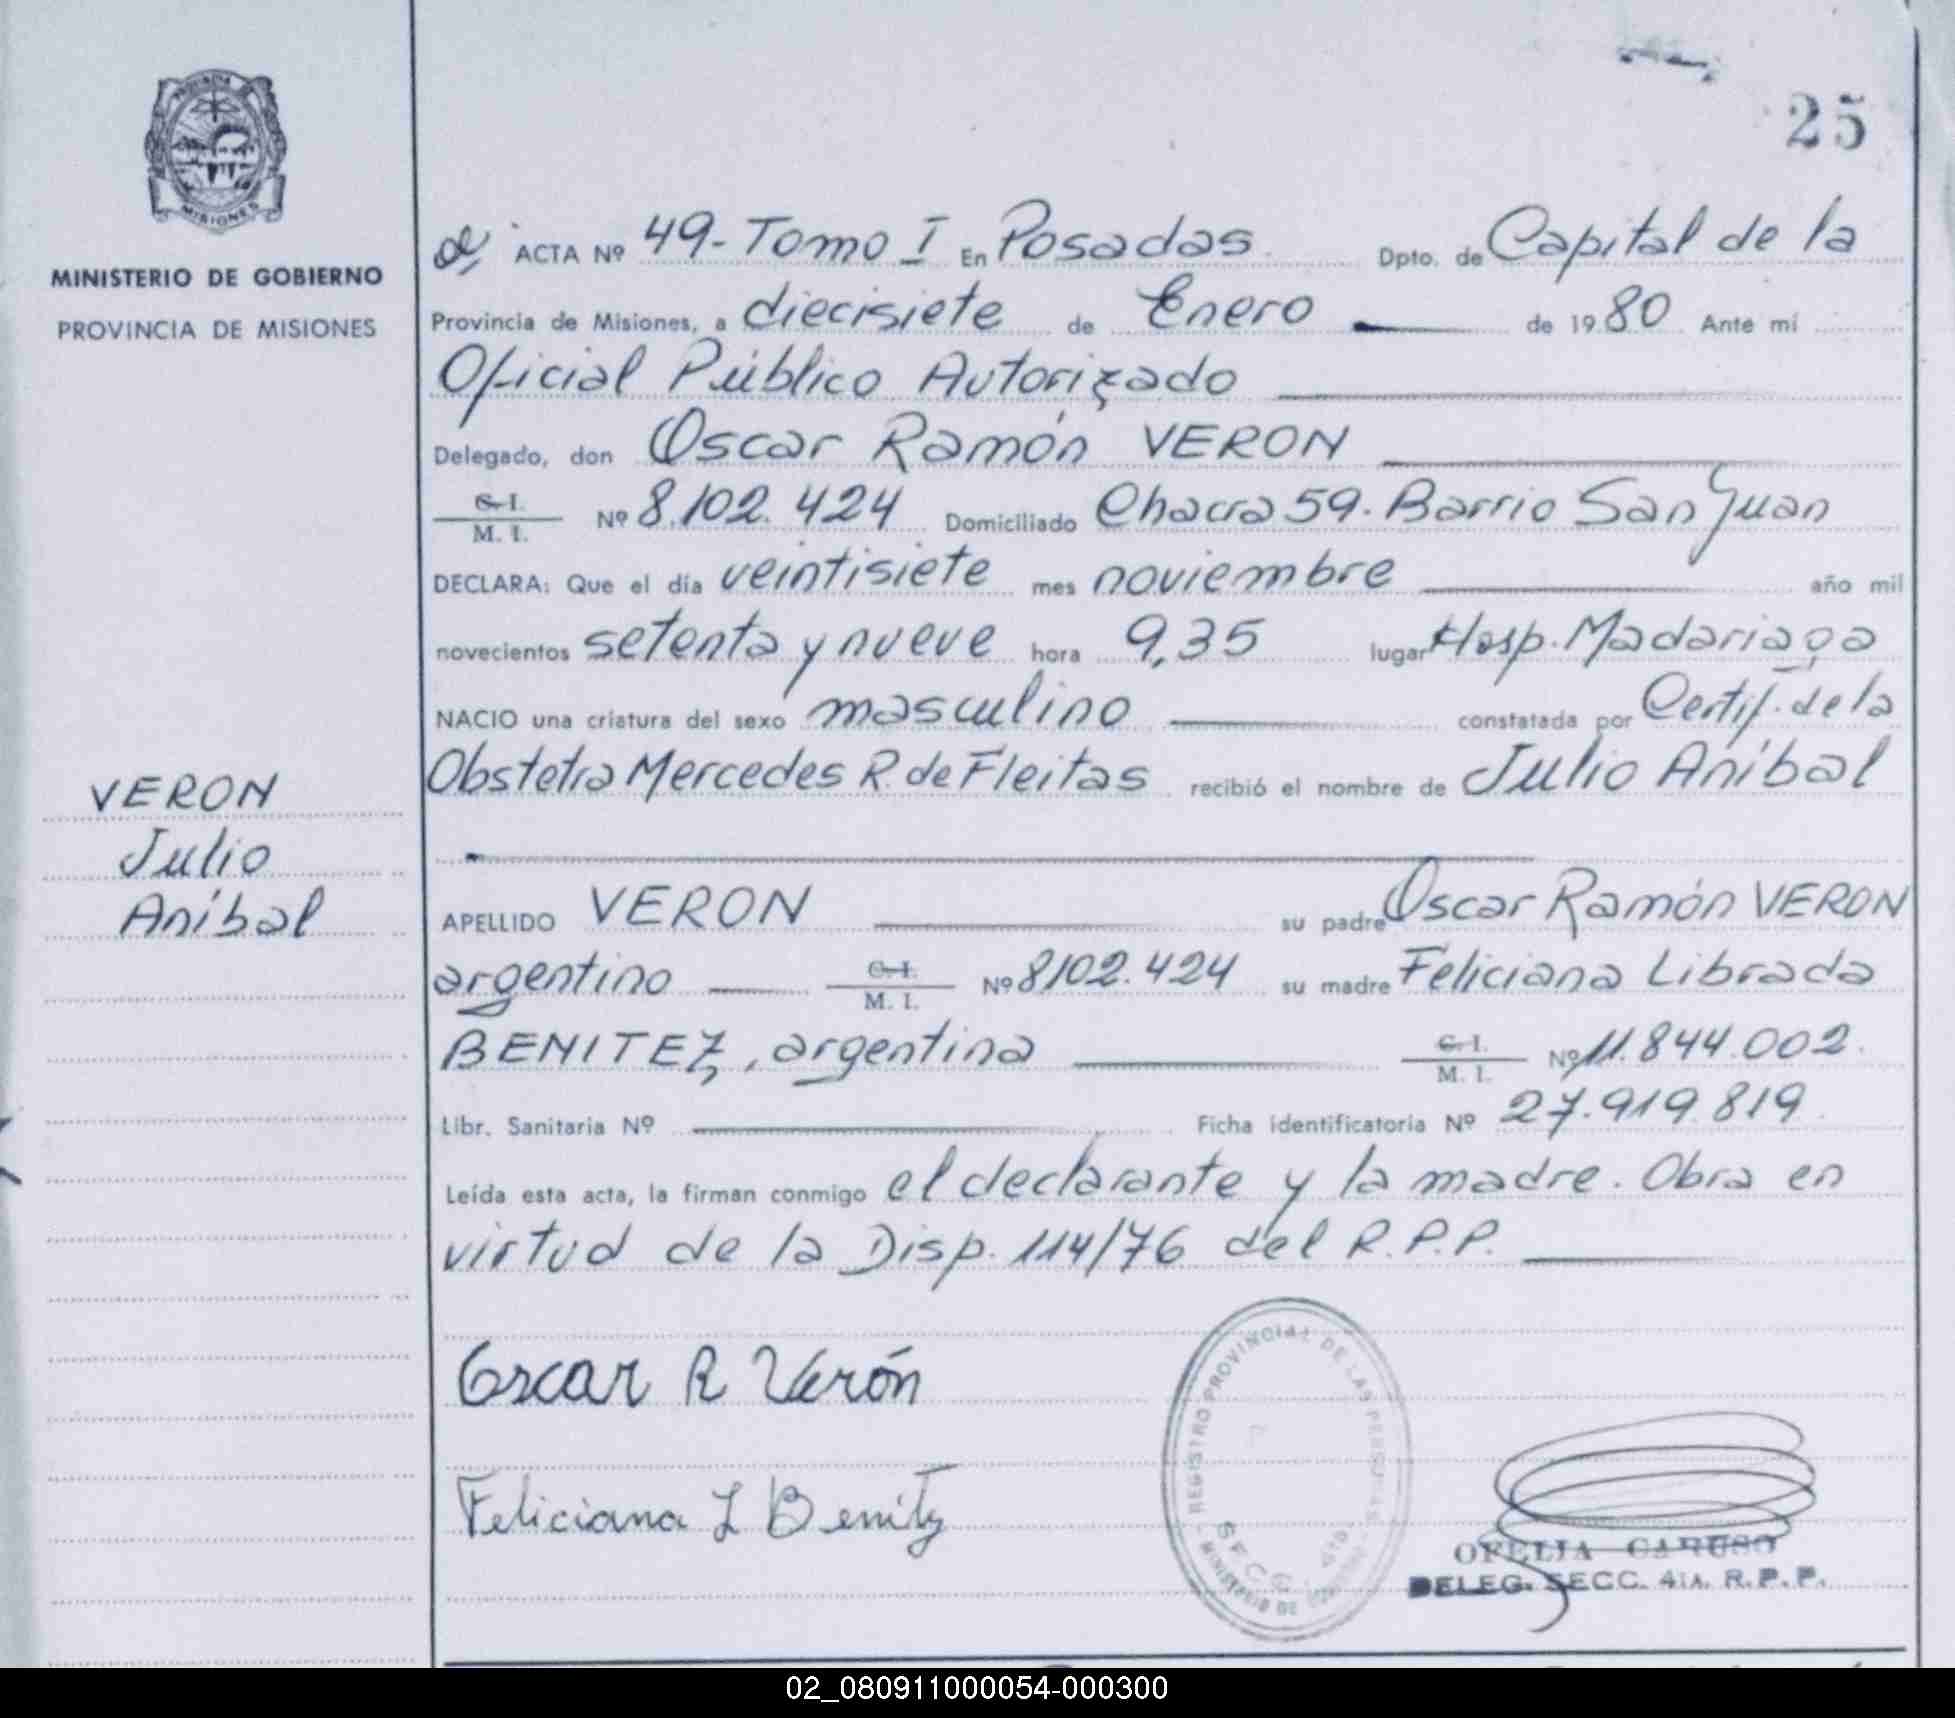 25
PROVINCIA
MISIONES
MINISTERIO DE GOBIERNO
PROVINCIA DE MISIONES
VERON
Julio
Aníbal
ACTA Nº 49-Tomo I En Posadas Dpto. de Capital de la
Provincia de Misiones, a diecisiete de Enero de 1980 Ante mí
Oficial Público Autorizado
Delegado, don Oscar Ramón VERON
C. I.
M. I. Nº 8.102.424 Domiciliado Chacra 59. Barrio San Juan
DECLARA: Que el día veintisiete mes noviembre año mil
novecientos setenta y nueve hora 9,35 lugar Hosp. Madariaga
NACIO una criatura del sexo masculino constatada por Certif. de la
Obstetra Mercedes R. de Fleitas recibió el nombre de Julio Aníbal
APELLIDO VERON su padre Oscar Ramón VERON
argentino C. I.
M. I. Nº 8102.424 su madre Feliciana Librada
BENITEZ, argentina C. I.
M. I. Nº 11.844.002.
Libr. Sanitaria Nº Ficha identificatoria Nº 27.919.819
Leída esta acta, la firman conmigo el declarante y la madre. Obra en
virtud de la Disp. 114/76 del R.P.P.
Oscar R Verón
Feliciana L Benitz
REGISTRO PROVINCIAL DE LAS PERSONAS
MINISTERIO DE
OFELIA CARUSO
DELEG. SECC. 4ta. R. P. P.
02_080911000054-000300